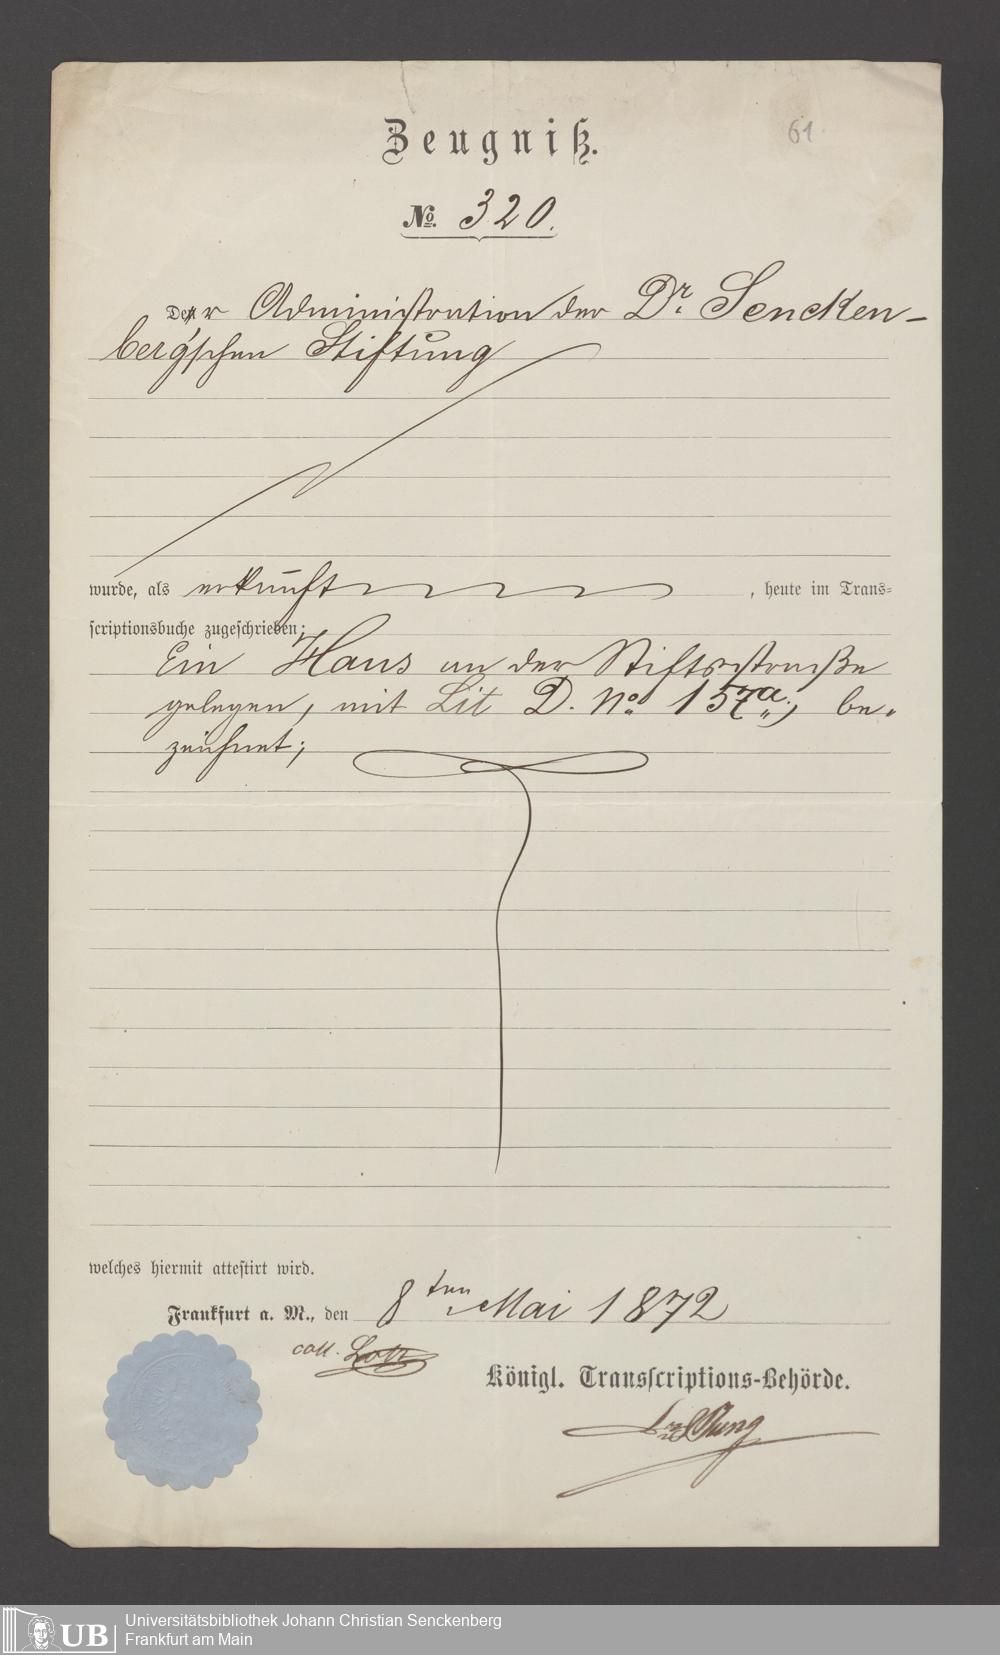 Zeugniß.
61
No. 320.
Der Administration der Dr. Sencken-
berg'schen Stiftung
wurde, als erkauft, heute im Trans-
scriptionsbuche zugeschrieben:
Ein Haus an der Stiftsstraße
gelegen, mit Lit D. No. 157a, be-
zeichnet;
welches hiermit attestirt wird.
Frankfurt a. M., den 8ten Mai 1872
coll.
Königl. Transscriptions-Behörde.
Universitätsbibliothek Johann Christian Senckenberg
UB
Frankfurt am Main